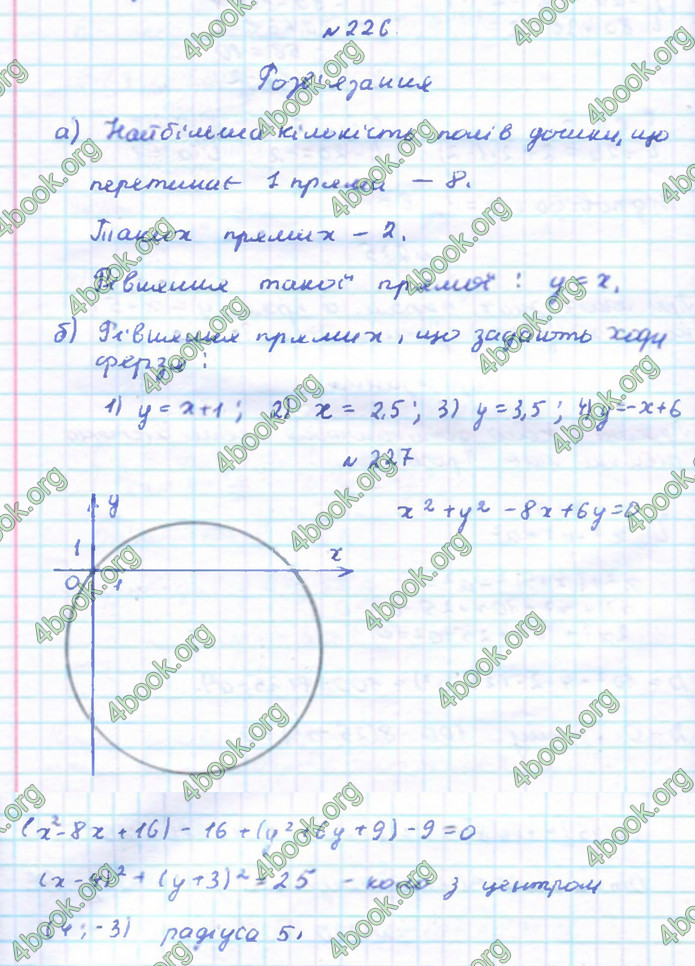 № 226.
Розв'язання
а) Найбільша кількість полів дошки, що
перетинає 1 пряма – 8.
Таких прямих – 2.
Рівняння такої прямої: y = x.
б) Рівняння прямих, що задають ходи
ферзя:
1) y = x+1; 2) x = 2,5; 3) y = 3,5; 4) y = -x+6
№ 227
x² + y² - 8x + 6y = 0
y
1
x
0
1
(x² - 8x + 16) - 16 + (y² + 6y + 9) - 9 = 0
(x-4)² + (y+3)² = 25 - коло з центром
(4; -3) радіуса 5.
4book.org